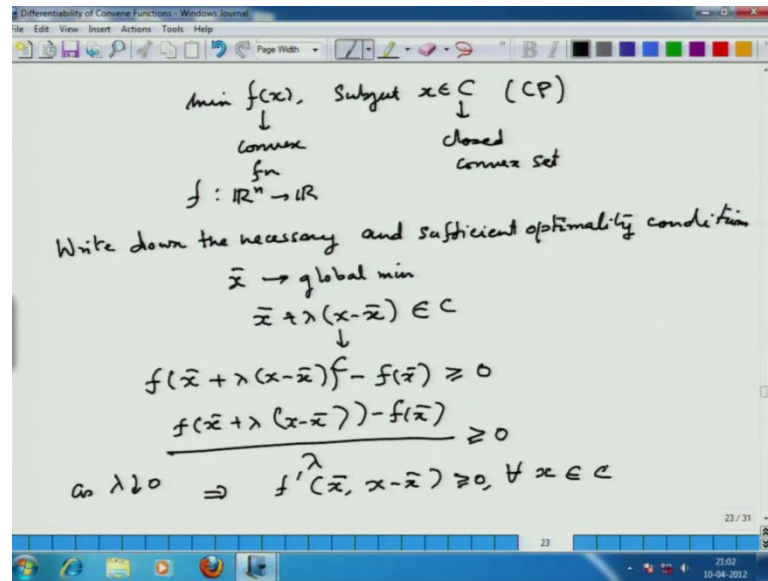 Differentiability of Convene Functions - Windows Journal
File Edit View Insert Actions Tools Help
Page Width
min f(x), Subject x ∈ C (CP)
↓ ↓
convex closed
fn convex set
f : ℝⁿ → ℝ
Write down the necessary and sufficient optimality condition
x̄ → global min
x̄ + λ(x-x̄) ∈ C
↓
f(x̄ + λ(x-x̄)) - f(x̄) ≥ 0
f(x̄ + λ(x-x̄)) - f(x̄)
≥ 0
λ
as λ↓0 ⇒ f'(x̄, x-x̄) ≥ 0, ∀ x ∈ C
23 / 31
23
21:02
10-04-2012